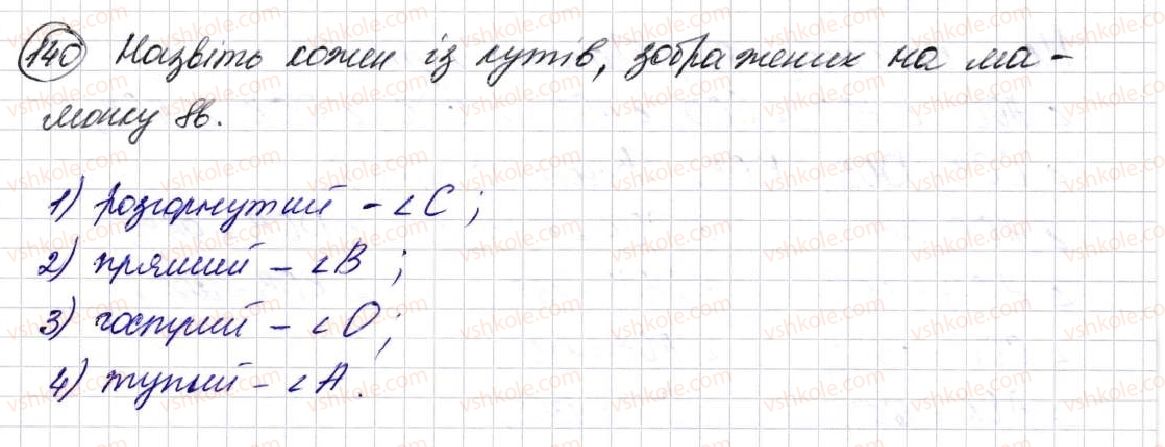 140 Назвіть кожен із кутів, зображених на ма-
люнку 86.
1) розгорнутий - ∠C;
2) прямий - ∠B;
3) гострий - ∠O;
4) тупий - ∠A.
vshkole.com